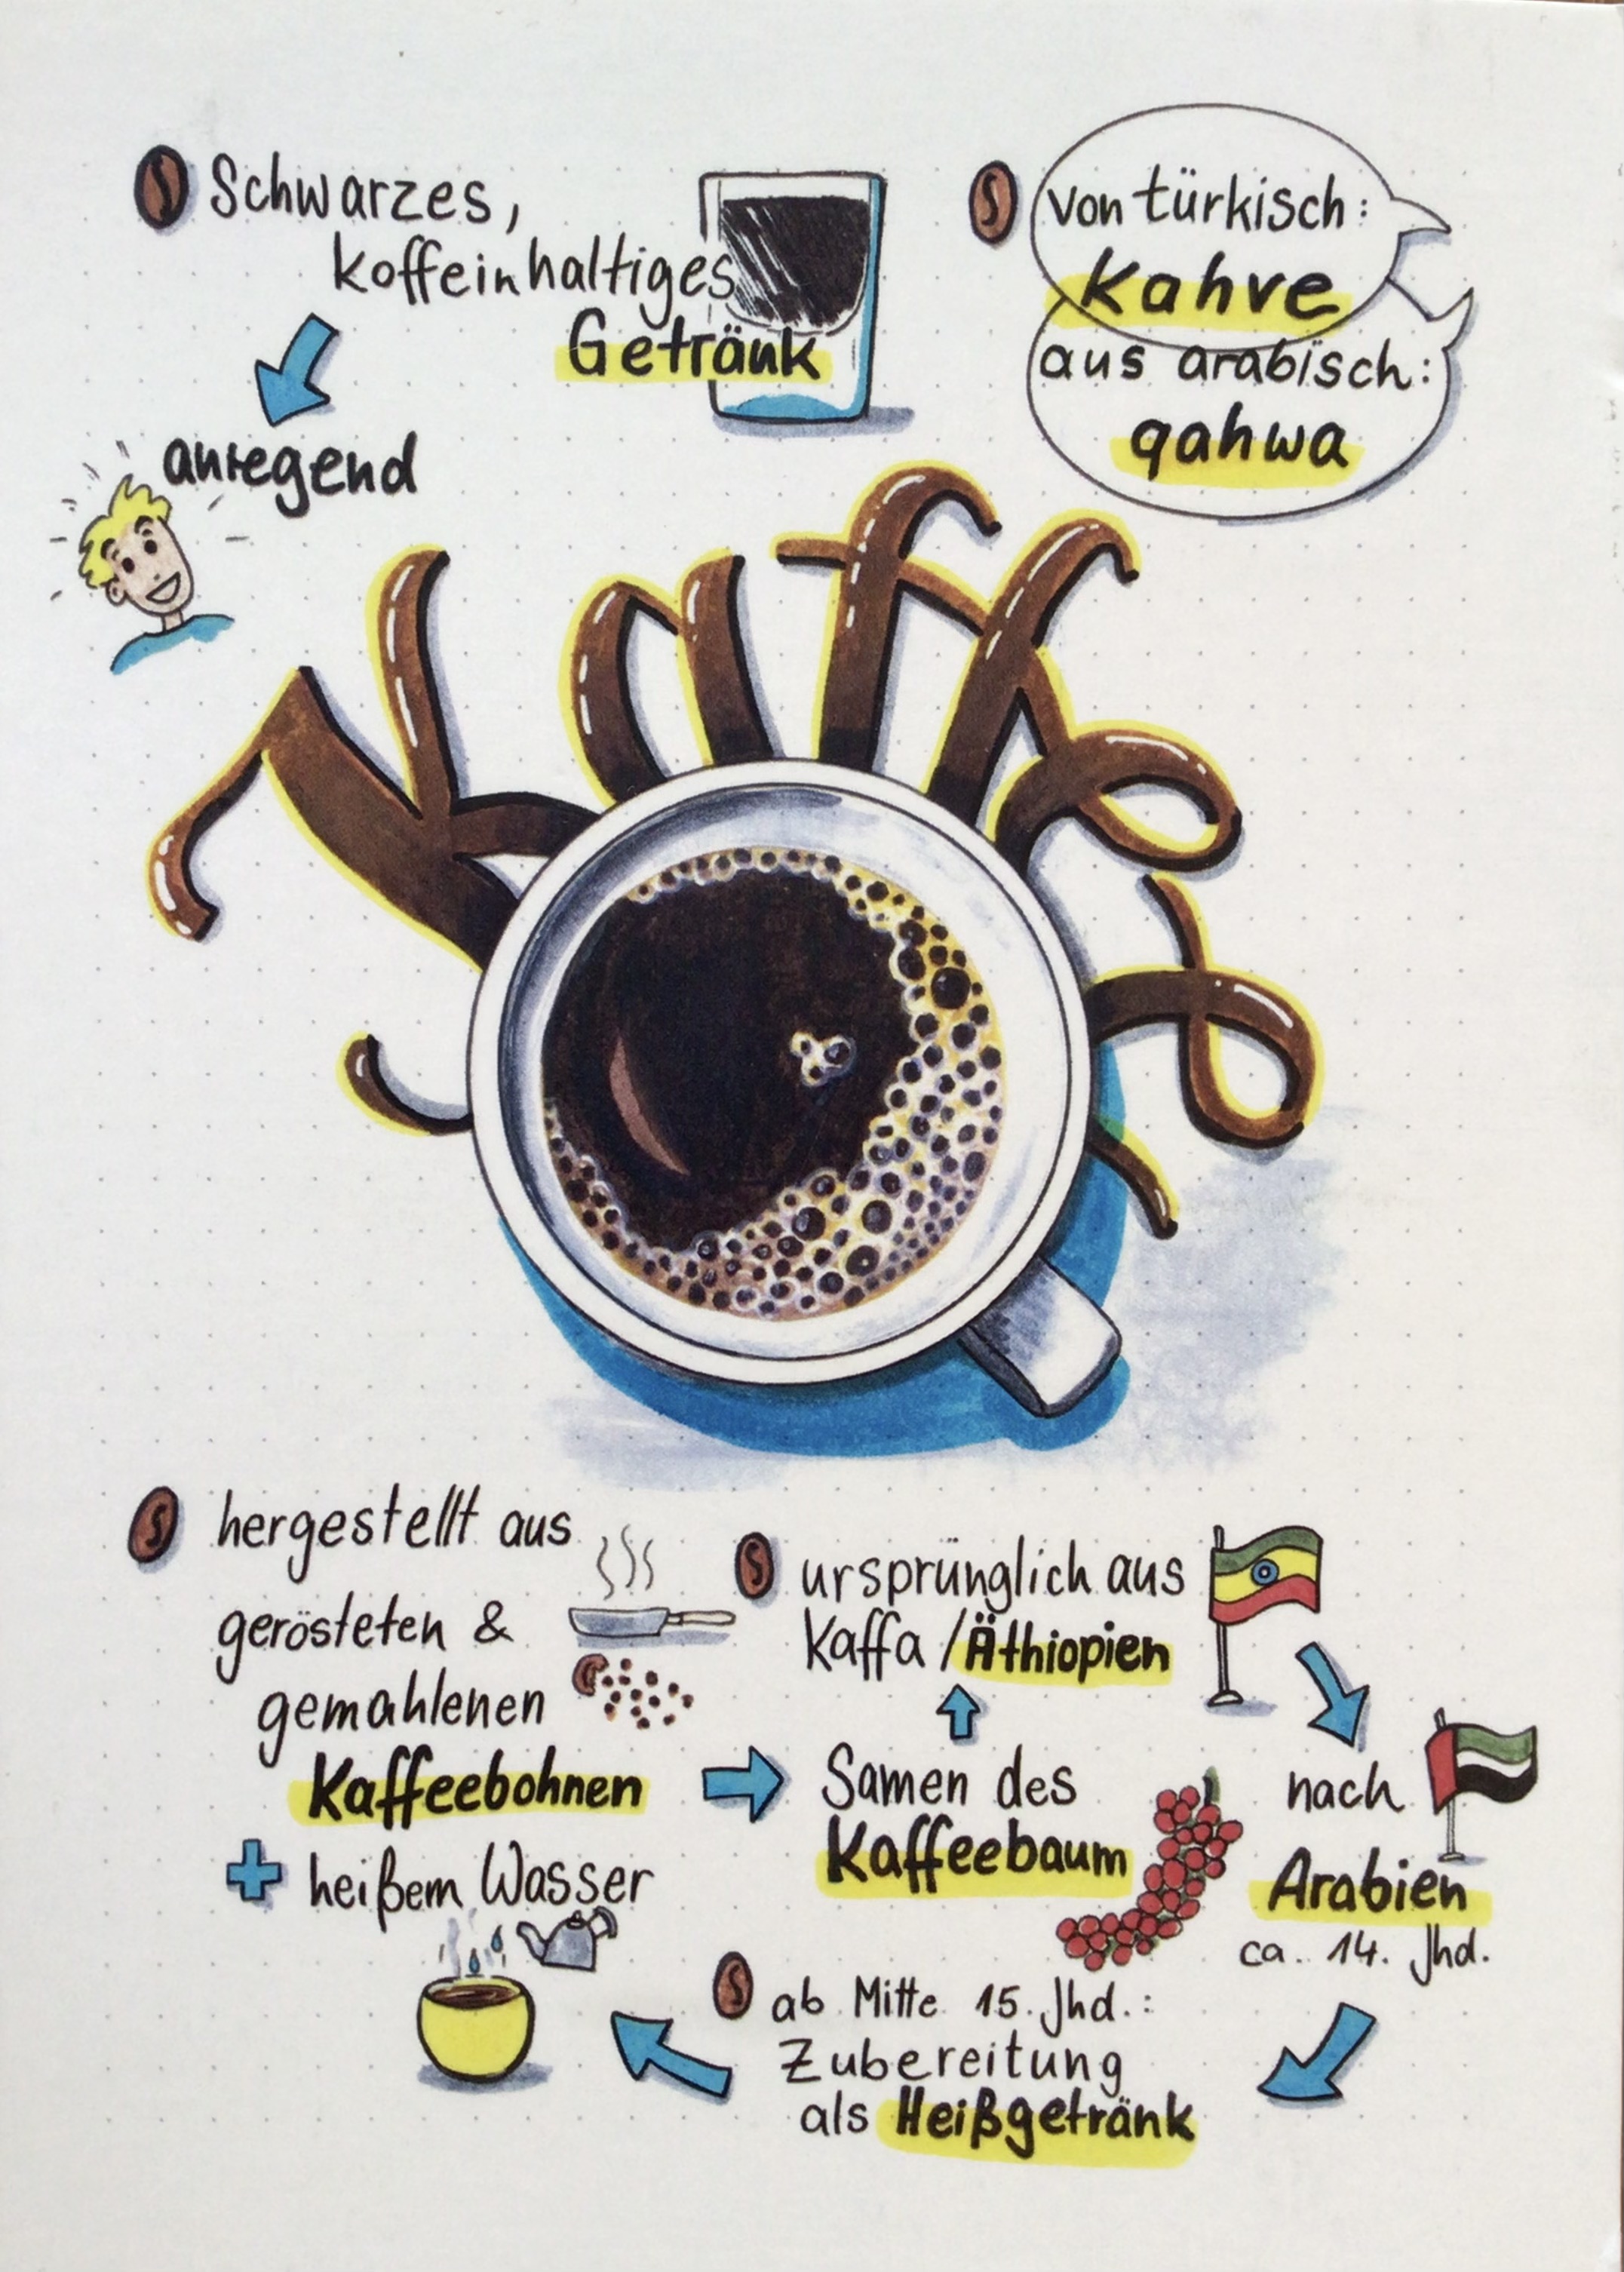 Schwarzes,
koffeinhaltiges
Getränk
anregend
von türkisch:
kahve
aus arabisch:
qahwa
Kaffee
hergestellt aus
gerösteten &
gemahlenen
Kaffeebohnen
+ heißem Wasser
ursprünglich aus
Kaffa / Äthiopien
Samen des
Kaffeebaum
nach
Arabien
ca. 14. Jhd.
ab Mitte 15. Jhd.:
Zubereitung
als Heißgetränk